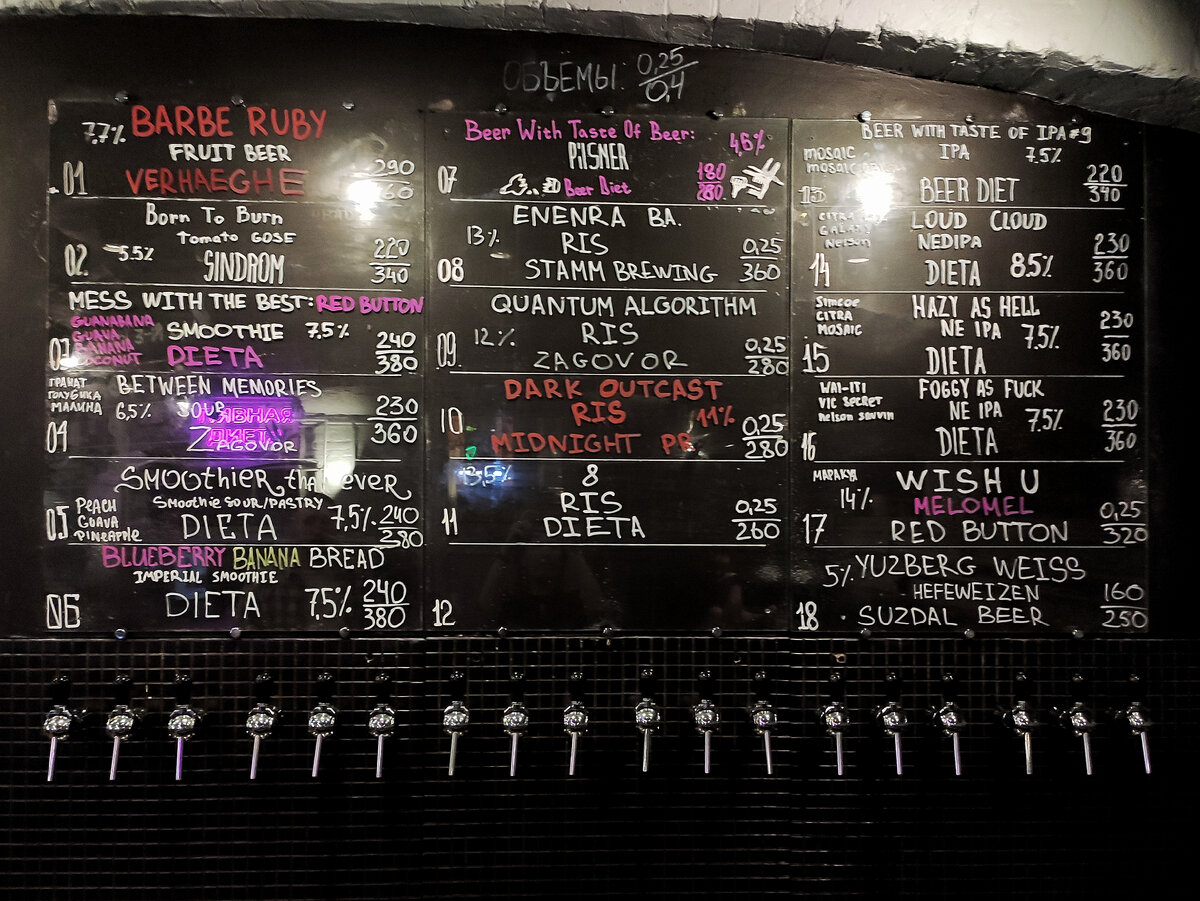 ОБЪЕМЫ: 0,25/0,4
7,7% BARBE RUBY
FRUIT BEER
01 VERHAEGHE 290
Born To Burn
Tomato GOSE
5.5% 220/340
02. SINDROM
MESS WITH THE BEST: RED BUTTON
GUANABANA
GUAVA SMOOTHIE 7.5% 240/380
BANANA DIETA
03 COCONUT
ГРАНАТ BETWEEN MEMORIES
ГОЛУБИКА
МАЛИНА 6.5% SOUR 230/360
04 ZAGOVOR
SMOOthiER than EVER
Smoothie SOUR/PASTRY
05 PEACH
GUAVA DIETA 7,5% 240/380
PINEAPPLE
BLUEBERRY BANANA BREAD
IMPERIAL SMOOTHIE
06 DIETA 7,5% 240/380
Beer With Taste Of Beer: 4,6%
PILSNER
07 Beer Diet 180/280
ENENRA BA.
13% RIS 0,25/360
08 STAMM BREWING
QUANTUM ALGORITHM
12% RIS
09. ZAGOVOR 0,25/280
DARK OUTCAST
10 RIS 11% 0,25/280
MIDNIGHT PR
13,5% 8
RIS
11 DIETA 0,25/260
12
BEER WITH TASTE OF IPA #9
MOSAIC IPA 7.5%
MOSAIC
13 BEER DIET 220/340
CITRA LOUD CLOUD
GALAXY NEDIPA
Nelson 230/360
14 DIETA 8.5%
Simcoe HAZY AS HELL
CITRA NE IPA 7,5% 230/360
MOSAIC
15 DIETA
WAI-ITI FOGGY AS FUCK
VIC SECRET NE IPA 7.5% 230/360
Nelson Sauvin
16 DIETA
МАРАКУЯ WISH U
14% MELOMEL 0,25/320
17 RED BUTTON
5% YUZBERG WEISS
HEFEWEIZEN 160/250
18 SUZDAL BEER